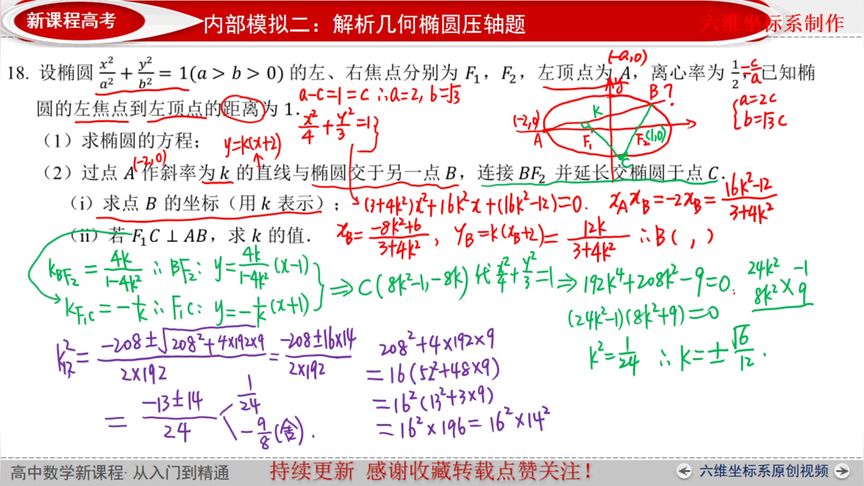 新课程高考
内部模拟二：解析几何椭圆压轴题
六维坐标系制作
18. 设椭圆 x²/a² + y²/b² = 1(a > b > 0) 的左、右焦点分别为 F₁，F₂，左顶点为 A，离心率为 1/2，已知椭
(-a,0)
= c/a
圆的左焦点到左顶点的距离为 1．
a-c=1=c ∴a=2, b=√3
{a=2c
b=√3 c
x²/4 + y²/3 = 1
(-2,0)
A
y
B?
K
F₁
F₂(1,0)
C
（1）求椭圆的方程；
y=k(x+2)
(-2,0)
（2）过点 A 作斜率为 k 的直线与椭圆交于另一点 B，连接 BF₂ 并延长交椭圆于点 C．
（i）求点 B 的坐标（用 k 表示）；
(3+4k²)x²+16k²x+(16k²-12)=0. x_A x_B=-2x_B= (16k²-12)/(3+4k²)
（ii）若 F₁C ⊥ AB，求 k 的值．
x_B= (-8k²+6)/(3+4k²), y_B=k(x_B+2)= 12k/(3+4k²) ∴B( , )
k_BF₂ = 4k/(1-4k²) ∴BF₂: y= 4k/(1-4k²) (x-1)
k_F₁C = -1/k ∴F₁C: y=-1/k (x+1)
⇒ C(8k²-1,-8k) 代 x²/4+y²/3=1 ⇒ 192k⁴+208k²-9=0.
24k² -1
8k² 9
(24k²-1)(8k²+9)=0
k²=1/24 ∴k=±√6/12.
k²₁,₂= (-208±√(208²+4×192×9))/(2×192) = (-208±16×14)/(2×192)
= (-13±14)/24
1/24
-9/8 (舍).
208²+4×192×9
=16(52²+48×9)
=16²(13²+3×9)
=16²×196=16²×14²
高中数学新课程· 从入门到精通
持续更新 感谢收藏转载点赞关注！
六维坐标系原创视频